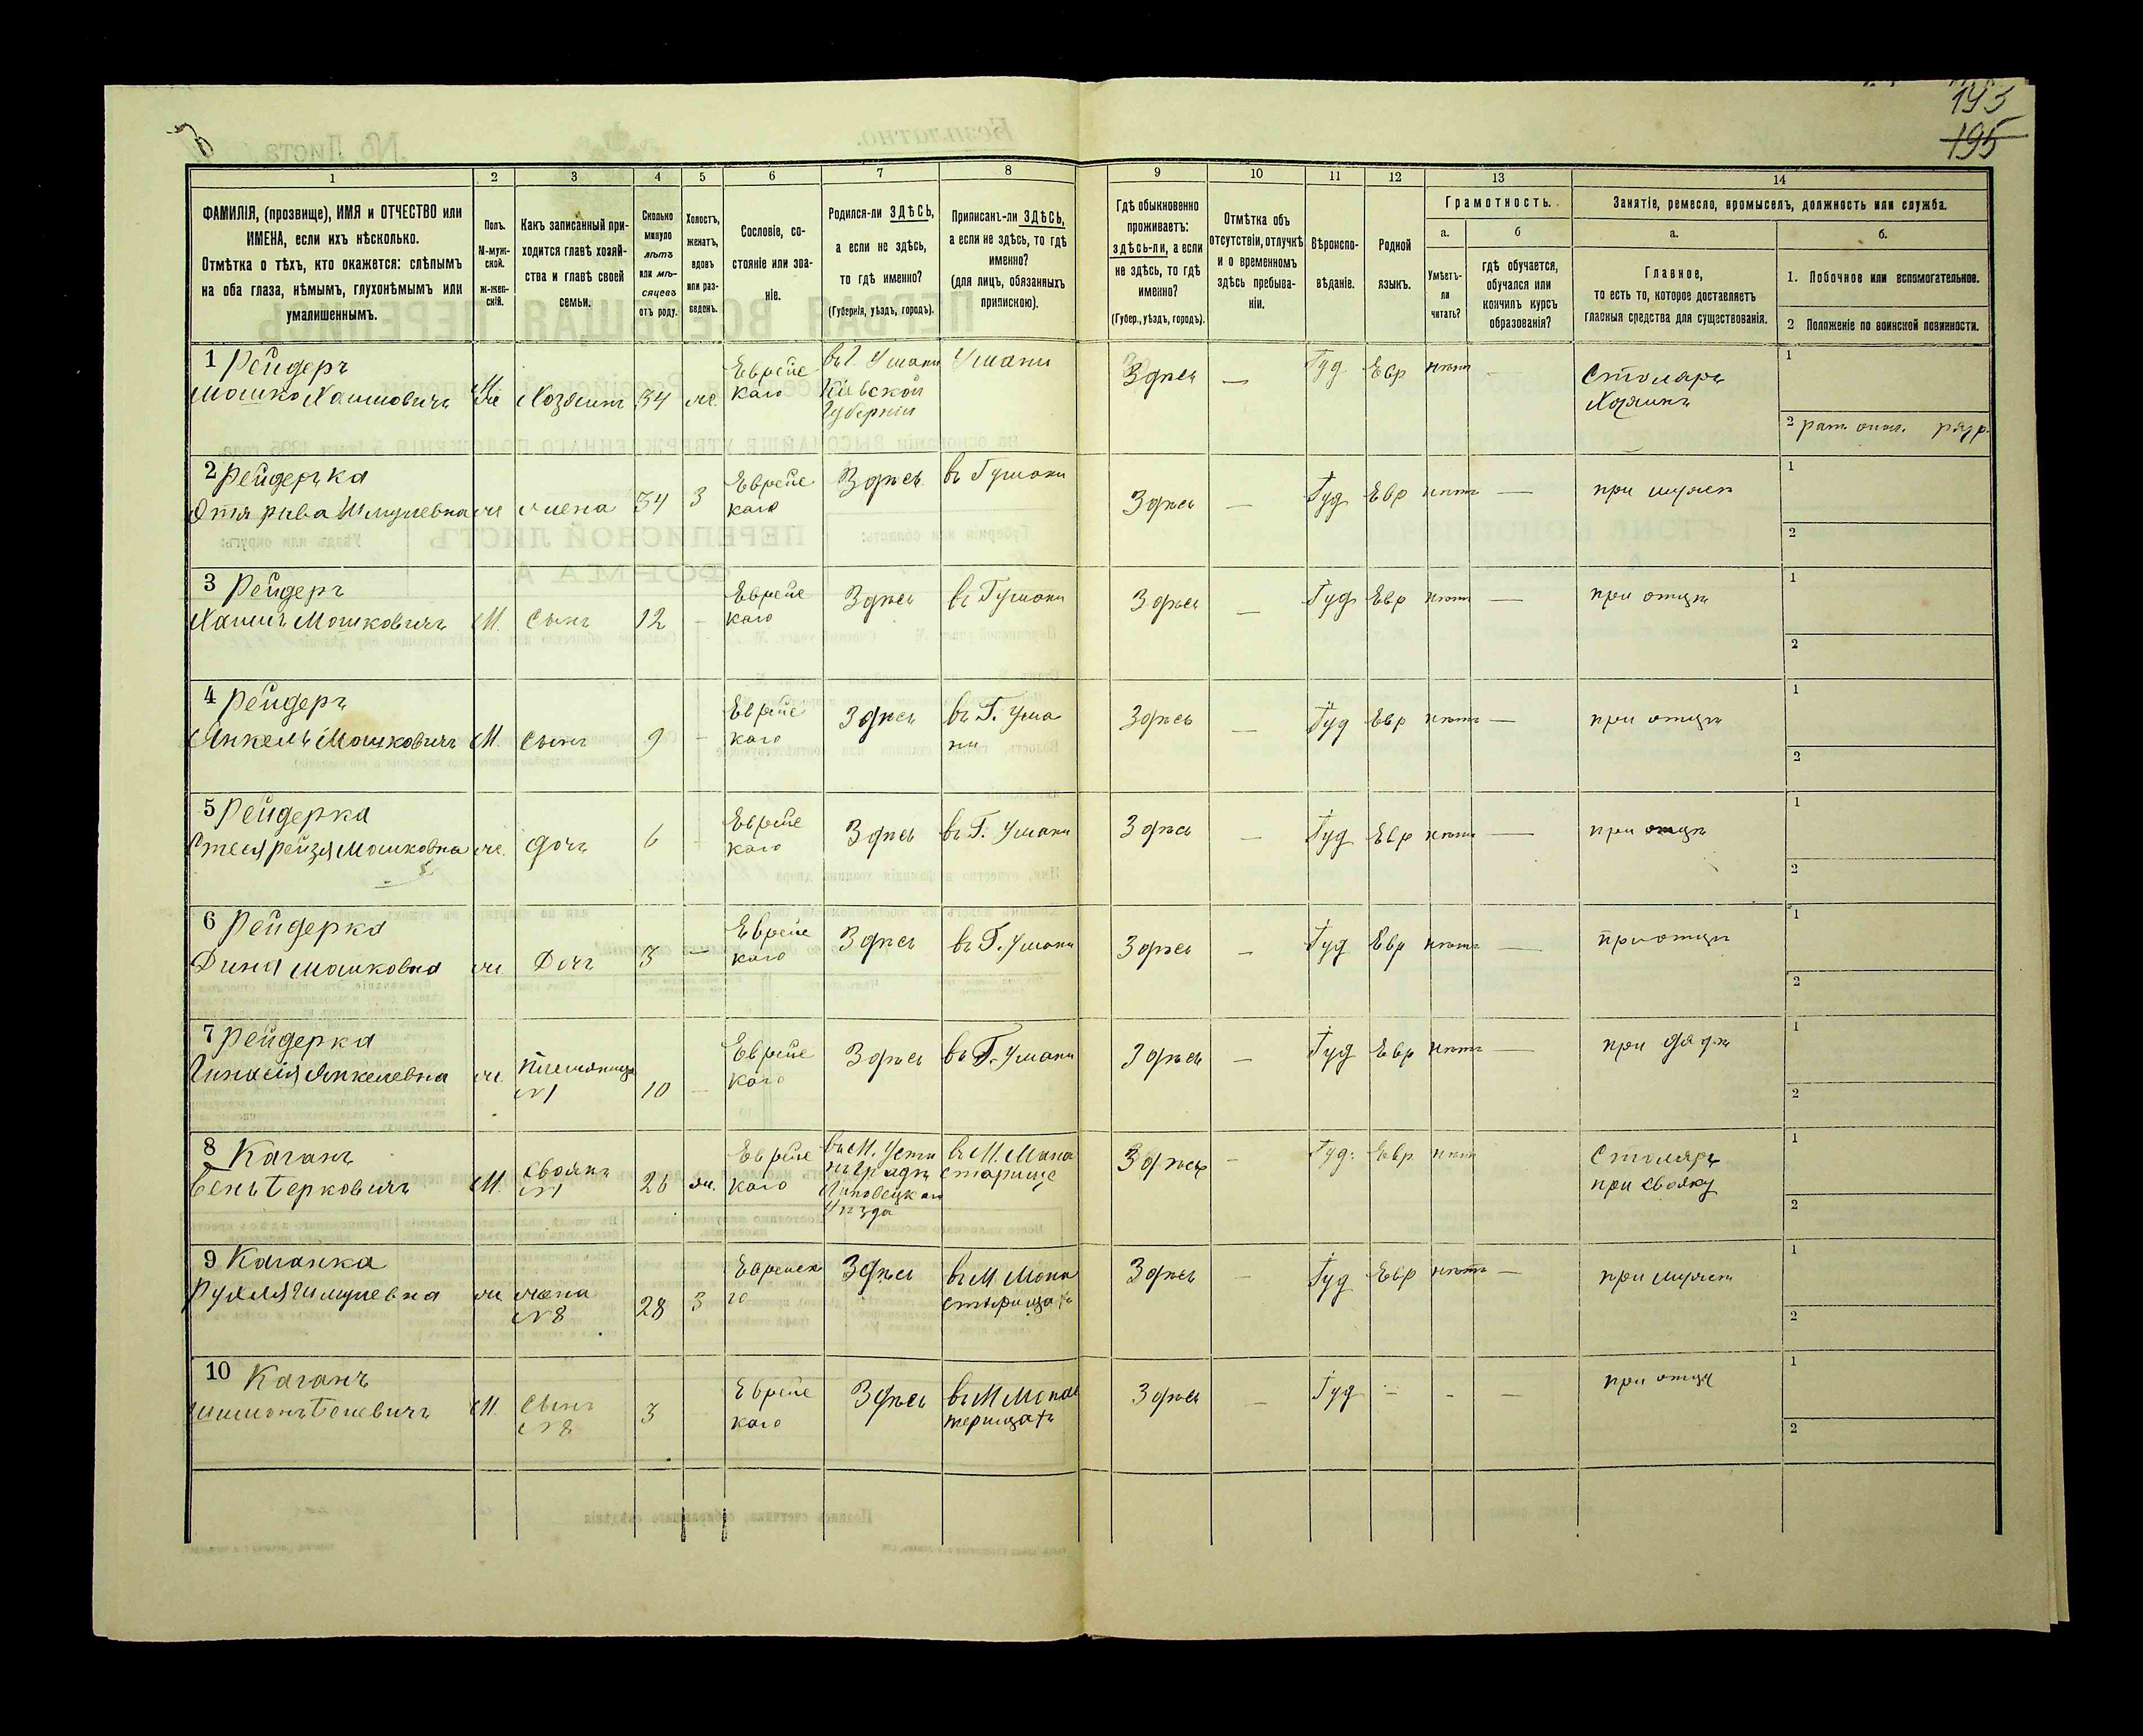 193
195
1
2
3
4
5
6
7
8
9
10
11
12
13
14
ФАМИЛІЯ, (прозвище), ИМЯ и ОТЧЕСТВО или
ИМЕНА, если ихъ нѣсколько.
Отмѣтка о тѣхъ, кто окажется: слѣпымъ
на оба глаза, нѣмымъ, глухонѣмымъ или
умалишеннымъ.
Полъ.
М-муж-
ской.
ж-жен-
скій.
Какъ записанный при-
ходится главѣ хозяй-
ства и главѣ своей
семьи.
Сколько
минуло
лѣтъ
или мѣ-
сяцевъ
отъ роду.
Холостъ,
женатъ,
вдовъ
или раз-
веденъ.
Сословіе, со-
стояніе или зва-
ніе.
Родился-ли ЗДѢСЬ,
а если не здѣсь,
то гдѣ именно?
(Губернія, уѣздъ, городъ).
Приписанъ-ли ЗДѢСЬ,
а если не здѣсь, то гдѣ
именно?
(для лицъ, обязанныхъ
припискою).
Гдѣ обыкновенно
проживаетъ:
здѣсь-ли, а если
не здѣсь, то гдѣ
именно?
(Губер., уѣздъ, городъ).
Отмѣтка объ
отсутствіи, отлучкѣ
и о временномъ
здѣсь пребыва-
ніи.
Вѣроиспо-
вѣданіе.
Родной
языкъ.
Грамотность.
а.
Умѣетъ-
ли
читать?
б
гдѣ обучается,
обучался или
кончилъ курсъ
образованія?
Занятіе, ремесло, промыселъ, должность или служба.
а.
Главное,
то есть то, которое доставляетъ
главныя средства для существованія.
б.
1. Побочное или вспомогательное.
2 Положеніе по воинской повинности.
1 Рейдеръ
Мошко Хаимовичъ
Хозяинъ
34
же.
Еврейс
каго
въ Г. Умани
Кіевской
Губерніи
Умани
Здѣсь
—
Іуд
Евр
нѣтъ
—
Столяръ
Хозяинъ
1
2 рат. опол. разр.
2 Рейдерка
Рива Шмулевна
ж
жена
34
З
Еврейс
каго
Здѣсь
въ Г Умани
Здѣсь
—
Іуд
Евр
нѣтъ
—
при мужѣ
1
2
3 Рейдеръ
Хаимъ Мошковичъ
М.
Сынъ
12
—
Еврейс
каго
Здѣсь
въ Г Умани
Здѣсь
—
Іуд
Евр
нѣтъ
—
при отцѣ
1
2
4 Рейдеръ
Янкель Мошковичъ
М.
Сынъ
9
—
Еврейс
каго
Здѣсь
въ Г. Ума
ни
Здѣсь
—
Іуд
Евр
нѣтъ
—
при отцѣ
1
2
5 Рейдерка
Рейзя Мошковна
же.
дочь
6
-
Еврейс
каго
Здѣсь
въ Г. Умани
Здѣсь
—
Іуд
Евр
нѣтъ
—
при отцѣ
1
2
6 Рейдерка
Дина Мошковна
ж
Дочь
3
—
Еврейс
каго
Здѣсь
въ Г. Умани
Здѣсь
—
Іуд
Евр
нѣтъ
—
при отцѣ
1
2
7 Рейдерка
Янкелевна
ж.
племяница
№1
10
—
Еврейс
каго
Здѣсь
въ Г. Умани
Здѣсь
—
Іуд
Евр
нѣтъ
—
при дядѣ
1
2
8 Каганъ
Берковичъ
М.
Своякъ
№1
26
же.
Еврейс
каго
въ М.
Липовецкаго
Уѣзда
въ М. Мона
старище
Здѣсь
-
Іуд.
Евр
нѣтъ
Столяръ
при свояку
1
2
9 Каганка
Шмулевна
ж
жена
№8
28
З
Еврейск
го
Здѣсь
въ М Мона
стырища
Здѣсь
—
Іуд
Евр
нѣтъ
—
при мужѣ
1
2
10 Каганъ
Шимонъ
М.
Сынъ
№8
3
Еврейс
каго
Здѣсь
въ М Мона
Здѣсь
—
Іуд
-
-
—
при отцѣ
1
2